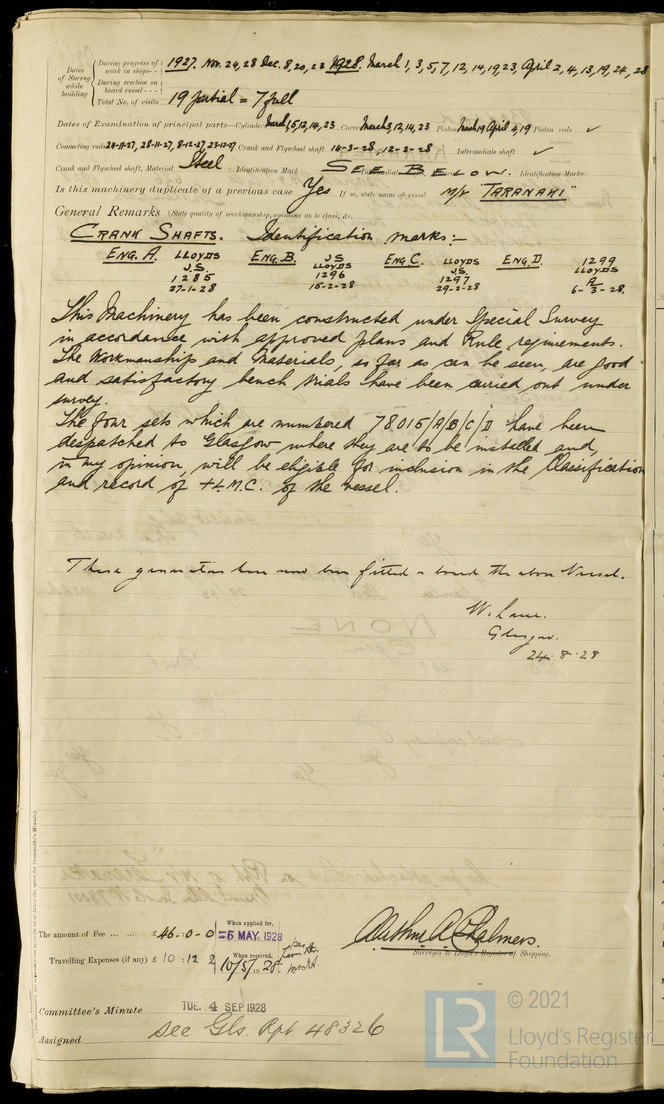 Dates of Survey while building
During progress of work in shops - - 1927. Nov. 24, 28 Dec. 8, 20, 23 1928. March 1, 3, 5, 7, 12, 14, 19, 23, April 2, 4, 13, 19, 24, 28
During erection on board vessel - - -
Total No. of visits 19 partial = 7 full
Dates of Examination of principal parts—Cylinders March 1, 5, 12, 14, 23 Covers March 3, 12, 14, 23 Pistons March 19 April 4, 19 Piston rods ✓
Connecting rods 24-11-27, 28-11-27, 8-12-27 23-12-27 Crank and Flywheel shaft 14-3-28, 12-3-28 Intermediate shaft ✓
Crank and Flywheel shaft, Material Steel Identification Mark SEE BELOW. Identification Marks
Is this machinery duplicate of a previous case Yes If so, state name of vessel m/v "TARANAKI"
General Remarks (State quality of workmanship, opinions as to class, &c.
CRANK SHAFTS. Identification marks:-
ENG. A. LLOYDS ENG. B. J.S. ENG C. LLOYDS ENG. D. 1299
J.S. LLOYDS J.S. LLOYDS
1285 1296 1297
27-1-28 15-2-28 29-2-28 6-3-28.
This Machinery has been constructed under Special Survey
in accordance with approved plans and Rule requirements.
The Workmanship and Materials, so far as can be seen, are good
and satisfactory bench trials have been carried out under
survey.
The four sets which are numbered 78015/A/B/C/D have been
despatched to Glasgow where they are to be installed and,
in my opinion, will be eligible for inclusion in the Classification
and record of +L.M.C. of the vessel.
These generators have now been fitted on board the above Vessel.
Glasgow.
24.8.28
NONE
The amount of Fee ... ... £ 46:0:0 When applied for, =5 MAY 1928
Travelling Expenses (if any) £ 10:12:2 When received, 10/5/1928.
Arthur A. Chalmers.
Surveyor to Lloyd's Register of Shipping.
Committee's Minute TUE. 4 SEP 1928
Assigned see Gls. Rpt 48326
LR © 2021
Lloyd's Register
Foundation